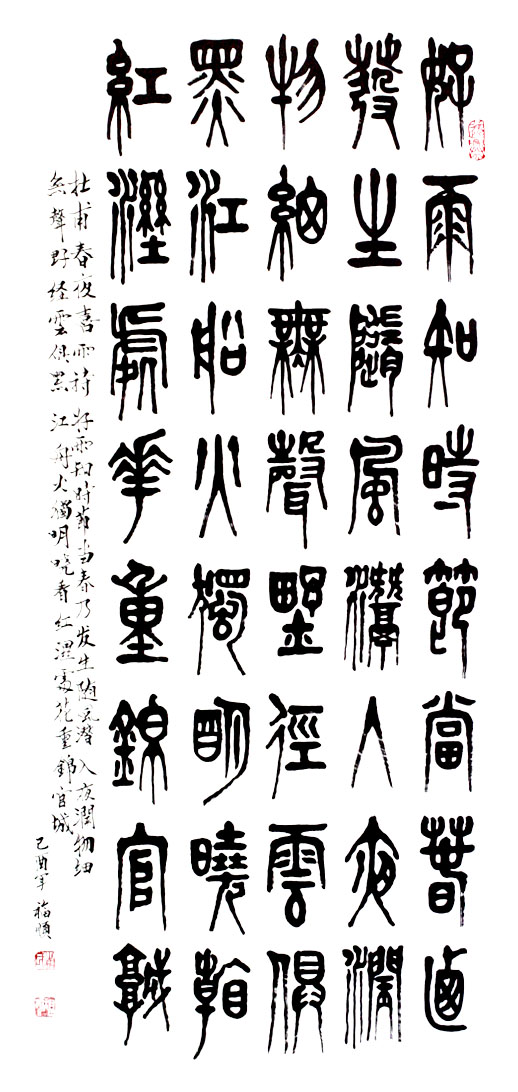 好雨知時節當春乃
發生隨風潛入夜潤
物細無聲野徑雲俱
黑江船火獨明曉看
紅濕處花重錦官城
杜甫春夜喜雨詩 好雨知时节当春乃发生随风潜入夜润物细
無聲野径雲俱黑 江舟火獨明晓看红湿處花重錦官城
己酉年 福順